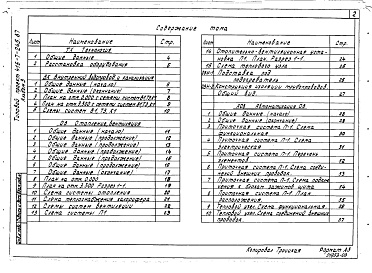 2
Содержание тома
Лист
Наименование
Стр.
ТХ Технология
1 Общие данные 4
2 Расстановка оборудования 5
ВК Внутренний водопровод и канализация
1 Общие данные (начало) 6
2 Общие данные (окончание) 7
3 План на отм. 0.000 с сетями систем 8
4 План на отм. 3.300 с сетями систем 9
5 Схемы систем В1, Т3, К1 10
ОВ Отопление, вентиляция
1 Общие данные (начало) 11
2 Общие данные (продолжение) 12
3 Общие данные (продолжение) 13
4 Общие данные (продолжение) 14
5 Общие данные (продолжение) 15
6 Общие данные (продолжение) 16
7 Общие данные (окончание) 17
8 План на отм. 0.000 18
9 План на отм. 3.300 Разрез 1-1 19
10 Схема системы отопления 20
11 Схема теплоснабжения калорифера
12 Схемы систем вентиляции
13 Схема системы П1
Лист
Наименование
Стр.
14 Отопительно-вентиляционная установка П1. План. Разрез 1-1. 24
15 Схема теплового узла 25
Подставка под подогреватель 26
Конструкция изоляции трубопроводов.
Общий вид 27
АОВ Автоматизация ОВ
1 Общие данные (начало) 28
2 Общие данные (окончание) 29
3 Приточная система П-1. Схема функциональная 30
4 Приточная система П-1. Схема электрическая 31
5 Приточная система П-1. Перечень элементов 32
6 Приточная система П-1. Схема соединений внешних проводок. 33
7 Приточная система П-1. Схема подключения к блокам зажимов щита 34
8 Приточная система П-1. План расположения. 35
9 Тепловой узел. Схема функциональная 36
10 Тепловой узел. Схема соединений внешних проводок. 37
Копировал Троицкая
Формат А3